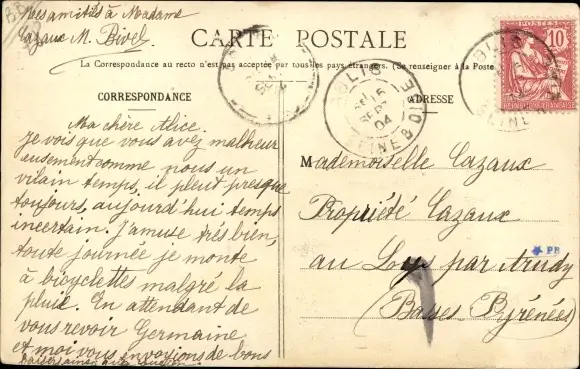 Mes amitiés à Madame
Cazaux M. Bivel
CARTE POSTALE
La Correspondance au recto n'est pas acceptée par tous les pays étrangers. (Se renseigner à la Poste
CORRESPONDANCE
ADRESSE
POSTES
10
RÉPUBLIQUE FRANÇAISE
SEPT
04
SEINE & OISE
Ma chère Alice.
Je vois que vous avez malheur
eusement comme nous un
vilain temps, il pleut presque
toujours, aujourd'hui temps
incertain. J'amuse très bien,
toute journée je monte
à bicyclettes malgré la
pluie. En attendant de
vous revoir Germaine
et moi vous envoyons de bons
baisers
Mademoiselle Cazaux
Propriété Cazaux
au Lys par Arudy
(Basses Pyrénées)
PB